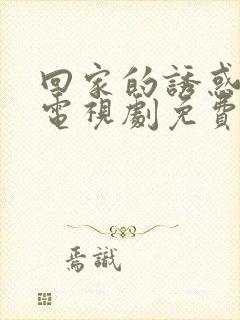 回家的誘惑
電視劇免費
焉識